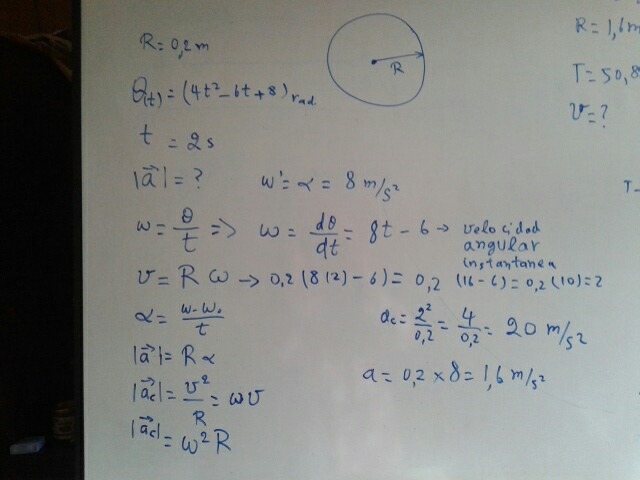 R = 0,2 m
R
R = 1,6 m
θ(t) = (4t² - 6t + 8) rad.
T = 50,8
t = 2 s
v = ?
|a⃗| = ? w' = α = 8 m/s²
T-
w = θ/t => w = dθ/dt = 8t - 6 → velocidad
angular
instantanea
v = R w → 0,2 (8(2) - 6) = 0,2 (16 - 6) = 0,2 (10) = 2
α = w - w₀/t
ac = 2²/0,2 = 4/0,2 = 20 m/s²
|a⃗| = R α
a = 0,2 × 8 = 1,6 m/s²
|a⃗c| = v²/R = w v
|a⃗c| = w² R